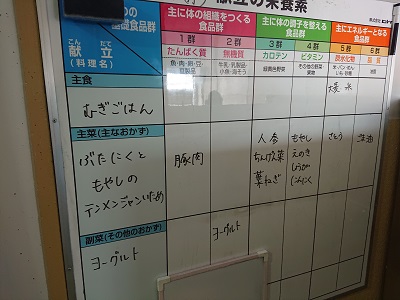 献立の栄養素
つの
基礎食品群
献立
(料理名)
主に体の組織をつくる
食品群
主に体の調子を整える
食品群
主にエネルギーとなる
食品群
1群
2群
3群
4群
5群
6群
たんぱく質
無機質
カロテン
ビタミン
炭水化物
脂質
魚・肉・卵・豆・
豆製品
牛乳・乳製品・
小魚・海そう
緑黄色野菜
その他の野菜
果実
主食
むぎごはん
主菜(主なおかず)
ぶたにくと
もやしの
テンメンジャンいため
豚肉
人参
葉ねぎ
もやし
えのき
しょうが
にんにく
さとう
副菜(その他のおかず)
ヨーグルト
ヨーグルト